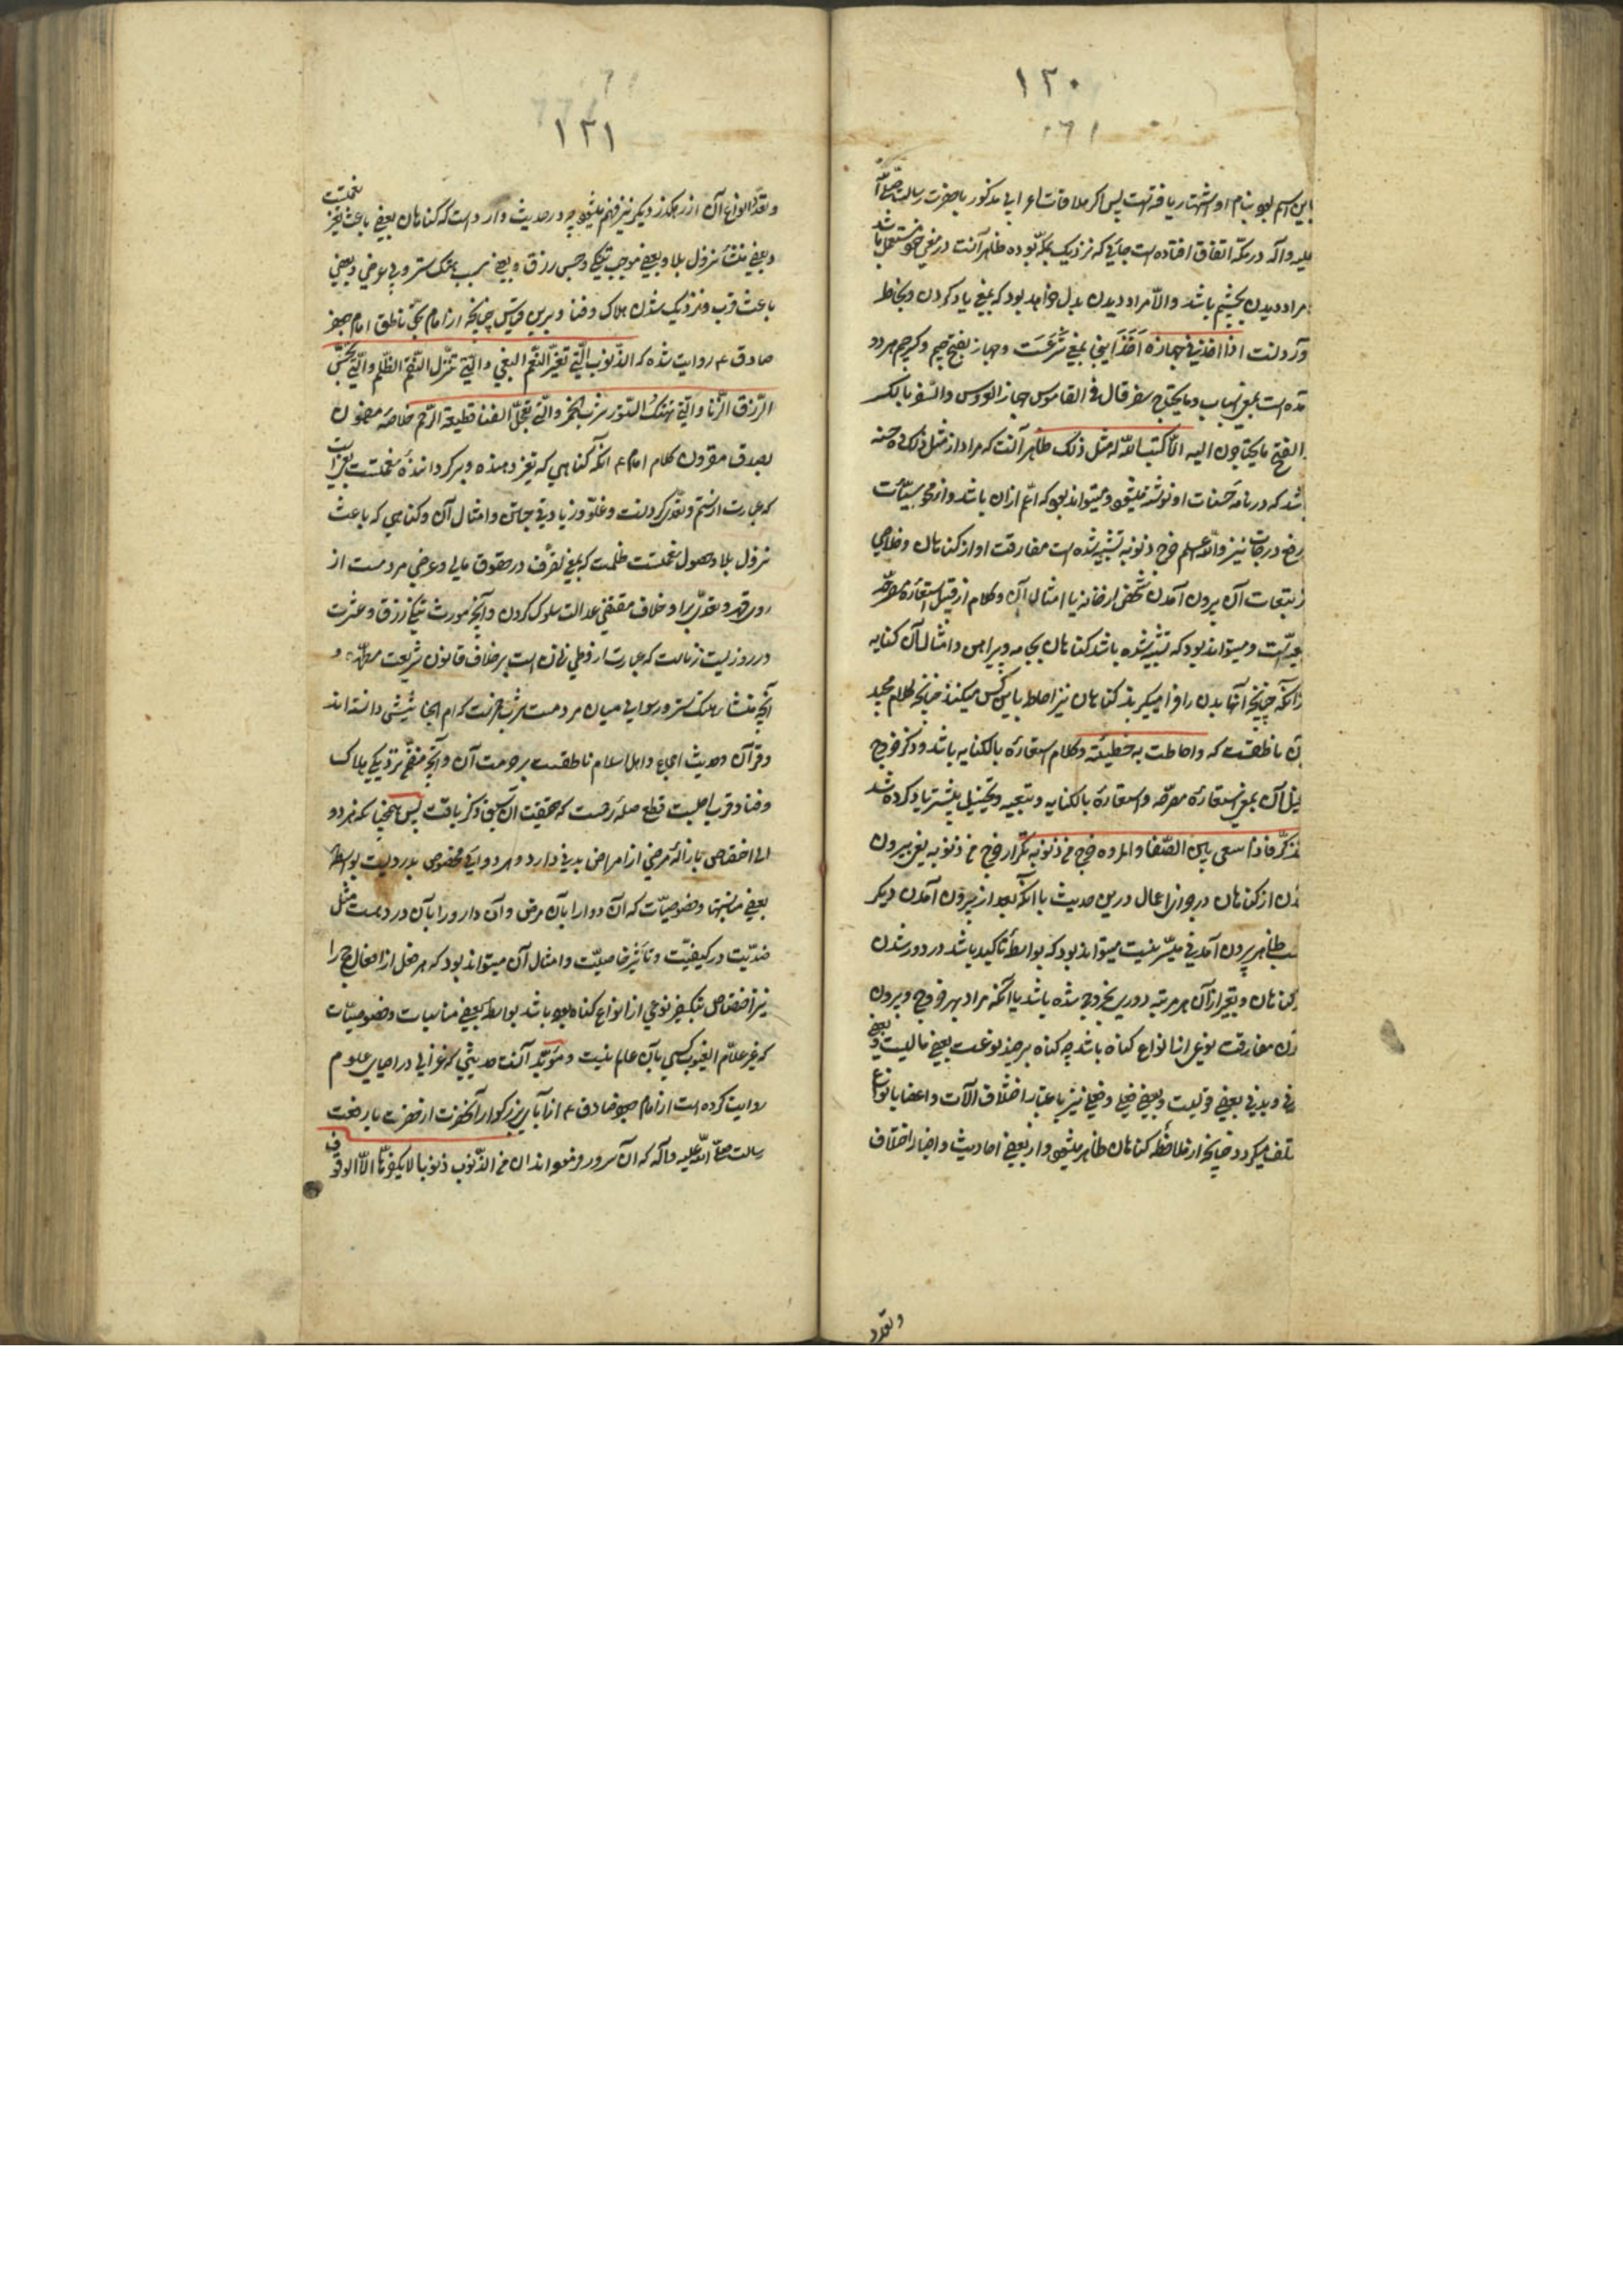 ١٣٠
باین اسم بوده بنام او اشتهار یافته است پس اگر ملاقات اعرابی مذکور با حضرت رسالت صلّی اللّه
علیه وآله در مکّه اتفاق افتاده است جایی که نزدیک بمکّه بوده ظاهر آنست در معنی مستعمل باشد
مراد دیدن بچشم باشد والّا مراد دیدن بدل خواهد بود که بمعنی یاد کردن و بخاطر
آوردنست اذا اخذ فی جهازه اخذ اینجا بمعنی شَرَعَست وجهاز بفتح جیم وکسر جیم هر دو
آمده است بمعنی اسباب وما یحتاج سفر قال فی القاموس جهاز العروس والسّفر بالکسر
والفتح ما یحتاجون الیه الّا کتب اللّه له مثل ذلک ظاهر آنست که مراد از مثل ذلک ده حسنه
باشد که در نامه حسنات او نوشته میشود ومیتواند بود که اعمّ ازان باشد واز محو سیّئات
رفع درجات نیز واللّه اعلم خرج من ذنوبه تشبیه شده است مفارقت او از کناهان وخلاصی
از تبعات آن ببیرون آمدن شخصی از خانه یا امثال آن وکلام از قبیل استعاره مصرّحه
تبعیّه است ومیتواند بود که تشبیه شده باشد کناهان بجامه وپیراهن وامثال آن کنایه
از آنکه چنانچه آنها بدن را فرا میکیرند کناهان نیز احاطه باین کس میکنند چنانچه کلام مجید
بآن ناطقست که واحاطت به خطیئته وکلام استعاره بالکنایه باشد وذکر خروج
تخییل آن بمعنی استعاره مصرّحه واستعاره بالکنایه وتبعیه وتخییل پیشتر یاد کرده شد
فتذکّر فاذا سعی بین الصّفا والمروه خرج من ذنوبه تکرار خرج من ذنوبه یعنی بیرون
آمدن از کناهان در جزای اعمال درین حدیث با آنکه بعد از بیرون آمدن دیکر
بحسب ظاهر بیرون آمدنی میسّر نیست میتواند بود که بواسطه تاکید باشد در دور شدن
از کناهان وتعبیر از آن هر مرتبه دوری بخروج شده باشد یا آنکه مراد بهر خروج وبیرون
آمدن مفارقت نوعی از انواع کناه باشد چه کناه بر چند نوعست بعضی مالیست وبعضی
بدنی وبدنی بعضی قولیست وبعضی فعلی وفعلی نیز باعتبار اختلاف آلات واعضا بانواع
مختلف میکردد چنانچه از ملاحظه کناهان ظاهر میشود واز بعضی احادیث واخبار اختلاف
وتعدد
١٣١
وتعدّد انواع آن از رهکذر دیکر نیز فهم میشود چه در حدیث وارد است که کناهان بعضی باعث تغیّر نعمتست
وبعضی منشأ نزول بلا وبعضی موجب تنکی وحبس رزق وبعضی سبب هتک ستر وبی عرضی وبعضی
باعث قرب ونزدیک شدن هلاک وفنا وبرین قیاس چنانچه از امام بحق ناطق امام جعفر
صادق ع روایت شده که الذّنوب الّتی تغیّر النّعم البغی والّتی تنزّل النّقم الظّلم والّتی تحبس
الرّزق الزّنا والّتی تهتک السّتور شرب الخمر والّتی تعجّل الفنا قطیعة الرّحم خلاصه مضمون
بصدق مقرون کلام امام ع آنکه کناهی که تغیر دهنده وبرکرداننده نعمتست بغی است
که عبارت از ستم وتعدّی کردنست وغلوّ وزیادتی جستن وامثال آن وکناهی که باعث
نزول بلا وحصول نقمتست ظلمست که بمعنی تصرّف در حقوق مالی وعرضی مردمست از
روی قهر وتعدّی براو خلاف مقتضی عدالت سلوک کردن وآنچه مورث تنکی رزق وعسرت
در روزیست زناست که عبارت از وطی زنان است برخلاف قانون شریعت مطهّره و
آنچه منشأ هتک ستر ورسوایی میان مردمست شرب خمرست که ام الخبائثش دانسته اند
وقرآن وحدیث اجماع واهل اسلام ناطقست بر حرمت آن وآنچه مقتضی نزدیکی هلاک
وفنا وقرب اجلست قطع صله رحمست که حقیقت آن سبق ذکر یافت پس همچنانکه هر دو
الی اختصاص بازاله مرضی از امراض بدنی دارد وهر دوایی مخصوص بدردیست بواسطه
بعضی مناسبتها وخصوصیّات که آن دوا را بآن مرض وآن دارو را بآن دردست مثل
ضدّیّت در کیفیّت وتأثیر خاصیّت وامثال آن میتواند بود که هر فعل از افعال حج را
نیز اختصاص بتکفیر نوعی از انواع کناه بوده باشد بواسطه بعضی مناسبات وخصوصیّات
که غیر علّام الغیوب کسی بآن عالم نیست ومؤیّد آنست حدیثی که غزالی در احیای علوم
روایت کرده است از امام جعفر صادق ع از آبای بزرکوار آنحضرت از حضرت با رفعت
رسالت صلّی اللّه علیه وآله که آن سرور فرموده اند ان من الذّنوب ذنوبا لا یکفّرها الّا الوقوف